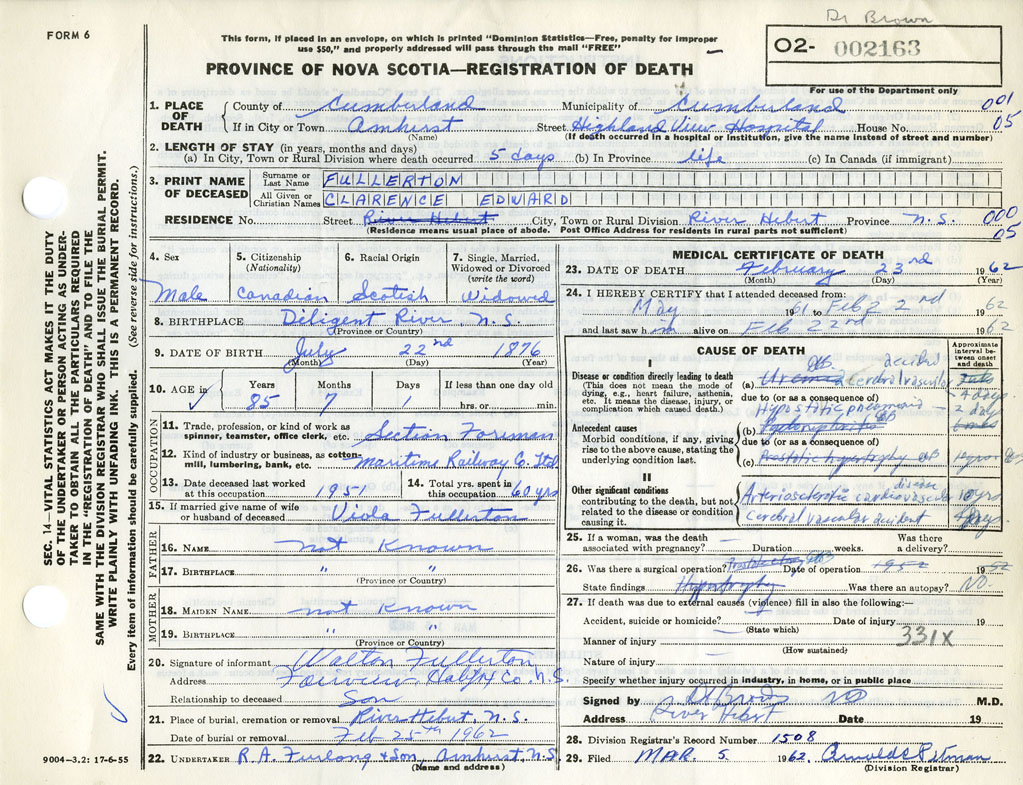 Dr Brown
FORM 6
This form, if placed in an envelope, on which is printed "Dominion Statistics—Free, penalty for improper
use $50," and properly addressed will pass through the mail "FREE"
O2- 002163
PROVINCE OF NOVA SCOTIA—REGISTRATION OF DEATH
For use of the Department only
1. PLACE OF DEATH { County of Cumberland Municipality of Cumberland 001
If in City or Town Amhurst Street Highland View Hospital House No. 05
(Name) (If death occurred in a hospital or institution, give the name instead of street and number)
2. LENGTH OF STAY (in years, months and days)
(a) In City, Town or Rural Division where death occurred 5 days (b) In Province life (c) In Canada (if immigrant)
3. PRINT NAME OF DECEASED Surname or Last Name FULLERTON
All Given or Christian Names CLARENCE EDWARD
RESIDENCE No. Street River Hebert City, Town or Rural Division River Hebert Province N.S. 000
05
(Residence means usual place of abode. Post Office Address for residents in rural parts not sufficient)
4. Sex Male
5. Citizenship (Nationality) Canadian
6. Racial Origin Scotish
7. Single, Married, Widowed or Divorced (write the word) Widowed
8. BIRTHPLACE Diligent River, N.S.
(Province or Country)
9. DATE OF BIRTH July 22nd 1876
(Month) (Day) (Year)
10. AGE in Years 85 Months 7 Days 1 If less than one day old hrs. or min.
OCCUPATION
11. Trade, profession, or kind of work as
spinner, teamster, office clerk, etc. Section Foreman
12. Kind of industry or business, as cotton-
mill, lumbering, bank, etc. Maritime Railway Co. Ltd
13. Date deceased last worked
at this occupation 1951
14. Total yrs. spent in
this occupation 60 yrs
15. If married give name of wife
or husband of deceased Viola Fullerton
FATHER
16. NAME not Known
17. BIRTHPLACE " "
(Province or Country)
MOTHER
18. MAIDEN NAME not Known
19. BIRTHPLACE " "
(Province or Country)
20. Signature of informant Walton Fullerton
Address Fairview, Halifax Co. N.S.
Relationship to deceased Son
21. Place of burial, cremation or removal River Hebert, N.S.
Date of burial or removal Feb 25th 1962
22. UNDERTAKER R.A. Furlong & Son, Amhurst N.S.
(Name and address)
MEDICAL CERTIFICATE OF DEATH
23. DATE OF DEATH February 23rd 1962
(Month) (Day) (Year)
24. I HEREBY CERTIFY that I attended deceased from:
May 1961 to Feb 22nd 62
and last saw him alive on Feb 22nd 1962
CAUSE OF DEATH
Approximate interval between onset and death
I
Disease or condition directly leading to death
(This does not mean the mode of
dying, e.g., heart failure, asthenia,
etc. It means the disease, injury, or
complication which caused death.)
(a) Uremia cerebral vascular accident
4 days
due to (or as a consequence of)
Hypostatic pneumonia - 2 days
Antecedent causes
Morbid conditions, if any, giving
rise to the above cause, stating the
underlying condition last.
(b)
due to (or as a consequence of)
(c) Prostatic hypertrophy
II
Other significant conditions
contributing to the death, but not
related to the disease or condition
causing it.
Arteriosclerotic cardiovascular disease 10 yrs
cerebral vascular accident days
25. If a woman, was the death
associated with pregnancy? Duration weeks. Was there
a delivery?
26. Was there a surgical operation? Date of operation 1952 19
State findings Hypertrophy Was there an autopsy? No.
27. If death was due to external causes (violence) fill in also the following:—
Accident, suicide or homicide? Date of injury 19
(State which)
Manner of injury 331X
(How sustained)
Nature of injury
Specify whether injury occurred in industry, in home, or in public place
Signed by M.D.
Address River Hebert Date 19
28. Division Registrar's Record Number 1508
29. Filed MAR. 5 1962
(Division Registrar)
SEC. 14—VITAL STATISTICS ACT MAKES IT THE DUTY
OF THE UNDERTAKER OR PERSON ACTING AS UNDER-
TAKER TO OBTAIN ALL THE PARTICULARS REQUIRED
IN THE "REGISTRATION OF DEATH" AND TO FILE THE
SAME WITH THE DIVISION REGISTRAR WHO SHALL ISSUE THE BURIAL PERMIT.
WRITE PLAINLY WITH UNFADING INK. THIS IS A PERMANENT RECORD.
Every item of information should be carefully supplied. (See reverse side for instructions.)
9004—3.2: 17-6-55